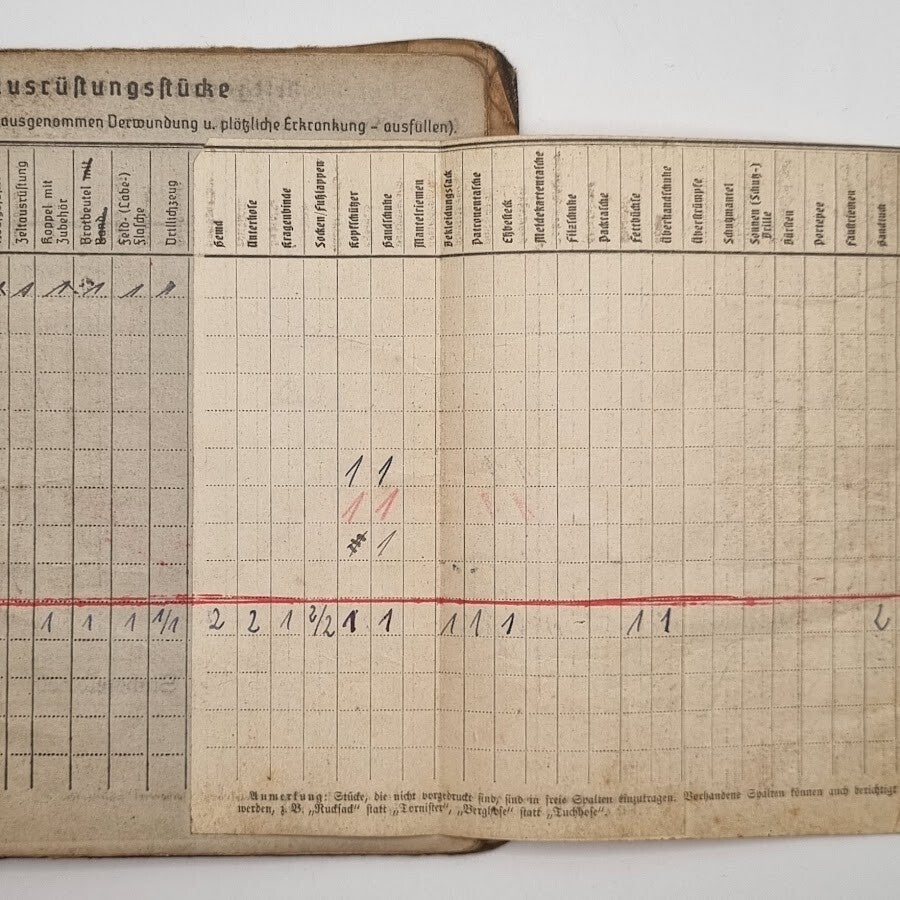 usrüstungsstücke
ausgenommen Verwundung u. plötzliche Erkrankung – ausfüllen).
Zeltausrüstung
Koppel mit
Zubehör
Brotbeutel mit
Band
Feld- (Labe-)
flasche
Drillichzeug
Hemd
Unterhose
Kragenbinde
Socken/Fußlappen
Kopfschützer
Handschuhe
Mantelriemen
Bekleidungssack
Patronentasche
Eßbesteck
Meldekartentasche
Filzschuhe
Packtasche
Fettbüchse
Überhandschuhe
Überstrümpfe
Schutzmantel
Sonnen (Schutz-)
Brille
Bürsten
Portepee
Faustriemen
Handtuch
1 1 1 1 1
1 1
1 1
1
1 1 1 1/1 2 2 1 2/2 1 1 1 1 1 - 1 1 2
Anmerkung: Stücke, die nicht vorgedruckt sind, sind in freie Spalten einzutragen. Vorhandene Spalten können auch berichtigt
werden, z. B. „Rucksack" statt „Tornister", „Berghose" statt „Tuchhose".